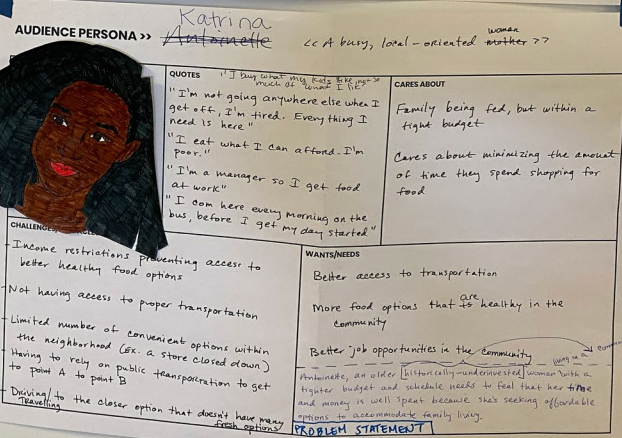 Katrina
AUDIENCE PERSONA >> Antoinette << A busy, local-oriented mother woman >>
QUOTES
"I buy what my kids like, not so
much of what I like"
"I'm not going anywhere else when I
get off, I'm tired. Everything I
need is here"
"I eat what I can afford. I'm
poor."
"I'm a manager so I get food
at work"
"I com here every morning on the
bus, before I get my day started"
CARES ABOUT
Family being fed, but within a
tight budget
Cares about minimizing the amount
of time they spend shopping for
food
CHALLENGES
- Income restrictions preventing access to
better healthy food options
- Not having access to proper transportation
- Limited number of convenient options within
the neighborhood (Ex. a store closed down)
- Having to rely on public transporation to get
to point A to point B
- Driving/Travelling to the closer option that doesn't have many
fresh options
WANTS/NEEDS
Better access to transportation
More food options that is are healthy in the
community
Better job opportunities in the community
living in a
Antoinette, an older historically-underinvested woman with a
tighter budget and schedule needs to feel that her time
and money is well spent because she's seeking affordable
options to accommodate family living.
PROBLEM STATEMENT